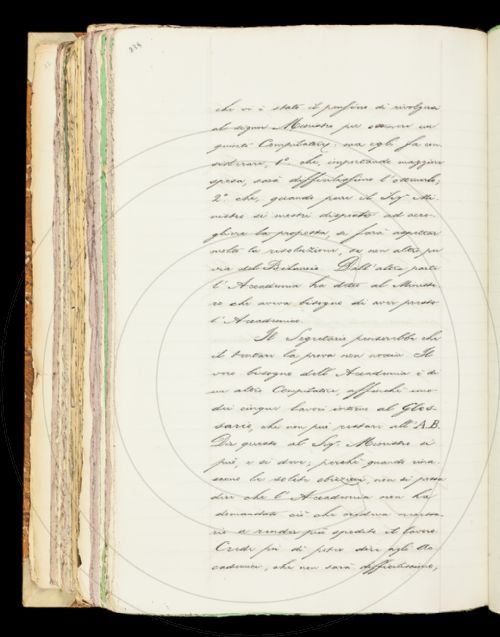 234
che vi è stato il pensiero di rivolgersi
al signor Ministro per ottenere un
quinto Compilatore; ma egli fa con-
siderare, 1º che, importando maggiore
spesa, sarà difficilissimo l'ottenerlo;
2º che, quando pure il Sigr Mi-
nistro si mostri disposto ad acco-
gliere la proposta, si farà aspettar
molto la risoluzione, se non altro per
via del Bilancio. Dall'altra parte
l'Accademia ha detto al Ministe-
ro che aveva bisogno di aver presto
l'Accademico.
Il Segretario penserebbe che
il tentare la prova non nocia. Il
vero bisogno dell'Accademia è di
un altro Compilatore, affinchè uno
dei cinque lavori intorno al Glos-
sario, che non può restare all'A.B.
Da questo al Sigr Ministro si
può, e si deve, perchè quando rina-
scono le solite obiezioni, non si possa
dire che l'Accademia non ha
domandato ciò che credeva necessa-
rio a render più spedito il lavoro.
Crede poi di poter dire agli Ac-
cademici, che non sarà difficilissimo,